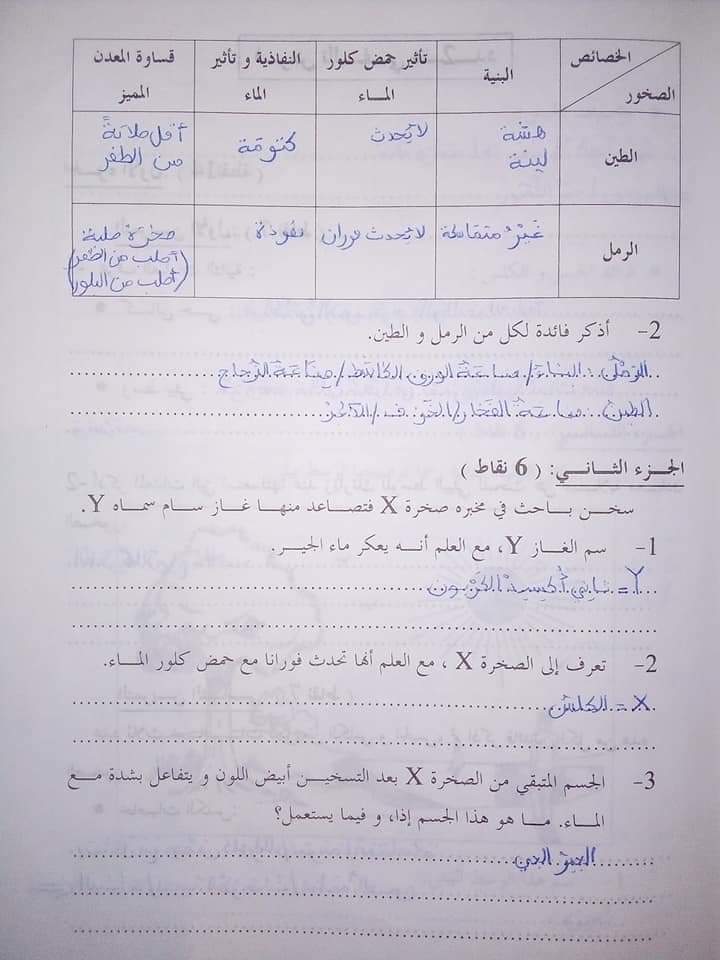 الخصائص
الصخور
البنية
تأثير حمض كلور
المـاء
النفاذية و تأثير
الماء
قساوة المعدن
المميز
الطين
هشة
لينة
لا يُحدث
كتومة
أقل صلابةً
من الظفر
الرمل
غيْرُ متماسكة
لا يُحدث فوران
نفوذة
صخرة صلبة
(أصلب من الظفر
أصلب من البلور)
2- أذكر فائدة لكل من الرمل و الطين.
الرّمل: البناء / صناعة الورق الكاشط / صِناعة الزّجاج
الطين: صناعة الفخار / الخزف / الآجر
الجزء الثاني: ( 6 نقاط )
سخن باحث في مخبره صخرة X فتصاعد منها غاز سام سماه Y.
1- سم الغاز Y، مع العلم أنه يعكر ماء الجير.
Y = ثاني أُكسيد الكَرْبون
2- تعرف إلى الصخرة X ، مع العلم أنها تحدث فورانا مع حمض كلور الماء.
X = الكلس
3- الجسم المتبقي من الصخرة X بعد التسخين أبيض اللون و يتفاعل بشدة مع
الماء. ما هو هذا الجسم إذا، و فيما يستعمل؟
الجير الحي